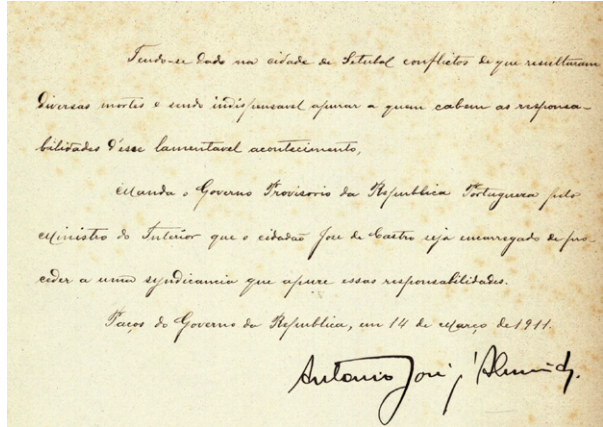 Tendo-se dado na cidade de Setubal conflictos de que resultaram
diversas mortes e sendo indispensavel apurar a quem cabem as responsa-
bilidades d'esse lamentavel acontecimento,
Manda o Governo Provisorio da Republica Portugueza pelo
Ministro do Interior que o cidadão José de Castro seja encarregado de pro-
ceder a uma syndicancia que apure essas responsabilidades.
Paços do Governo da Republica, em 14 de Março de 1911.
Antonio José d'Almeida.